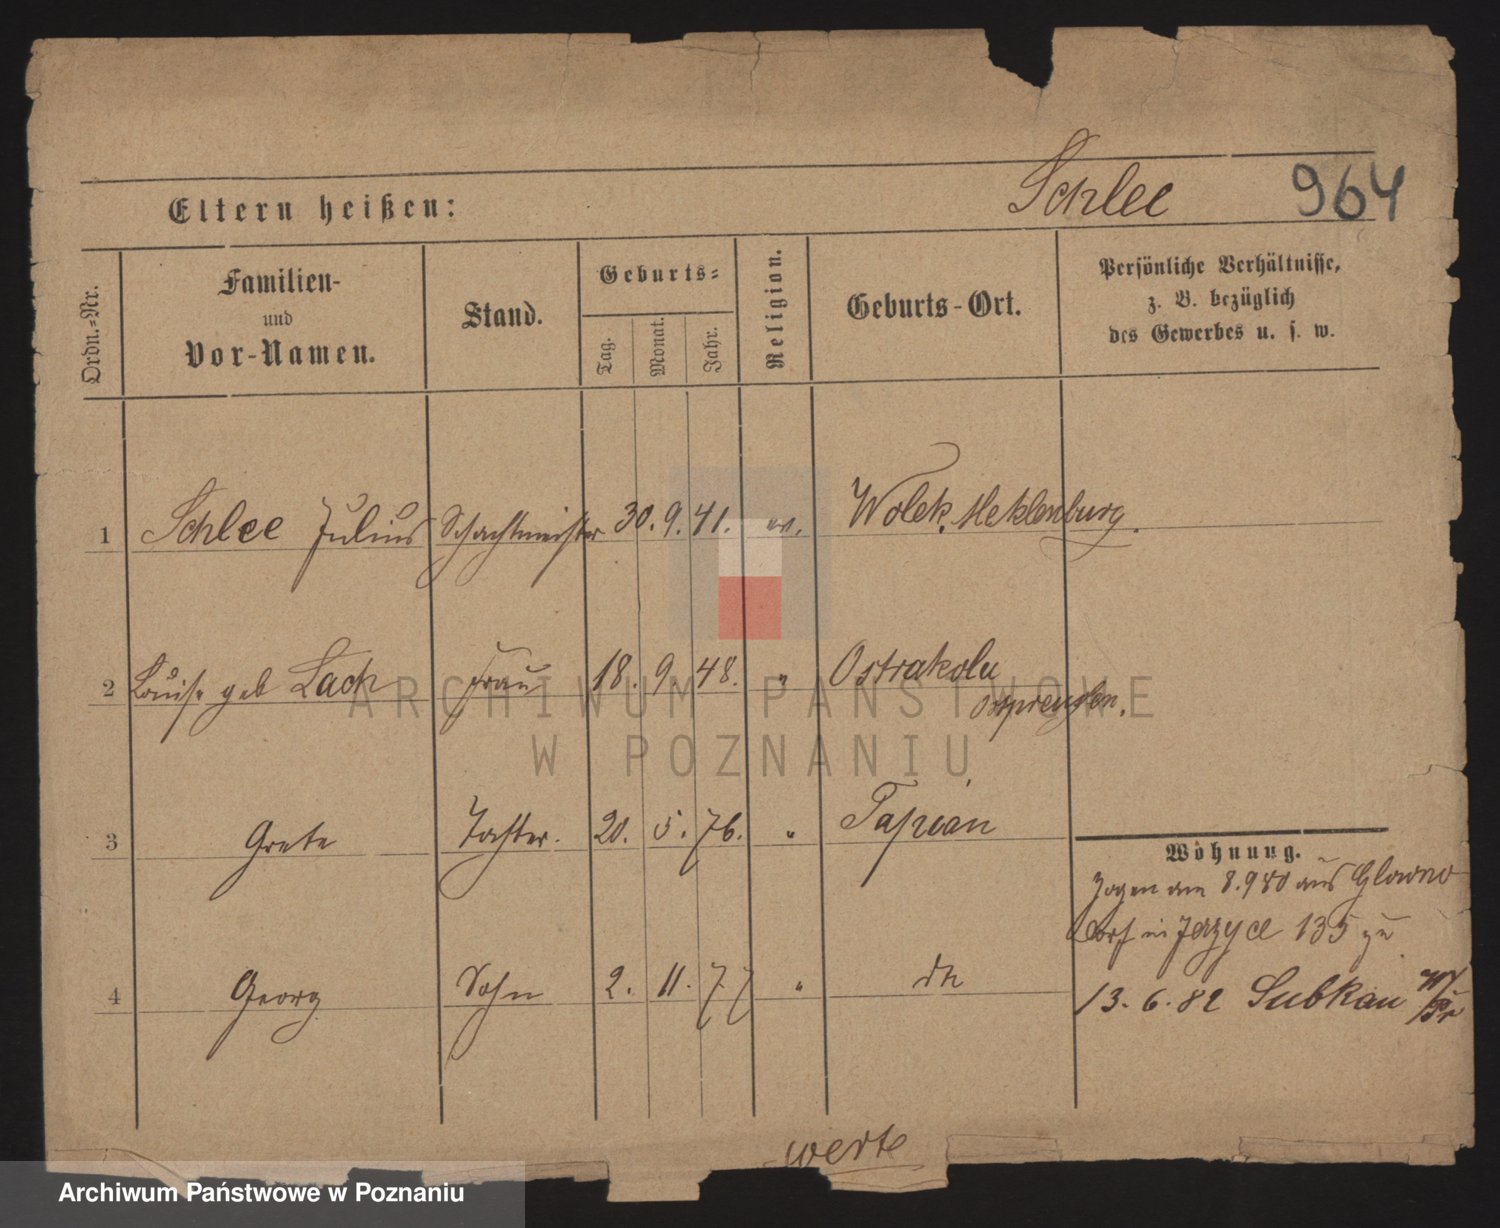 Eltern heißen: Schlee 964
Ordn.-Nr.
Familien-
und
Vor-Namen.
Stand.
Geburts-
Tag. Monat. Jahr.
Religion.
Geburts-Ort.
Persönliche Verhältnisse,
z. B. bezüglich
des Gewerbes u. s. w.
1 Schlee Julius Schachtmeister 30. 9. 41. ev. Wolek. Meklenburg.
2 Louise geb Lack Frau 18. 9. 48. " Ostrakoln
Ostpreußen.
3 Grete Tochter. 20. 5. 76. " Tapiau
4 Georg Sohn 2. 11. 77 " do
Wohnung.
Zogen am 8.9 80 aus Glowno
Dorf in Jerzyce 135 zu
13. 6. 82 Subkau W/Pr
werte
ARCHIWUM PAŃSTWOWE
W POZNANIU
Archiwum Państwowe w Poznaniu